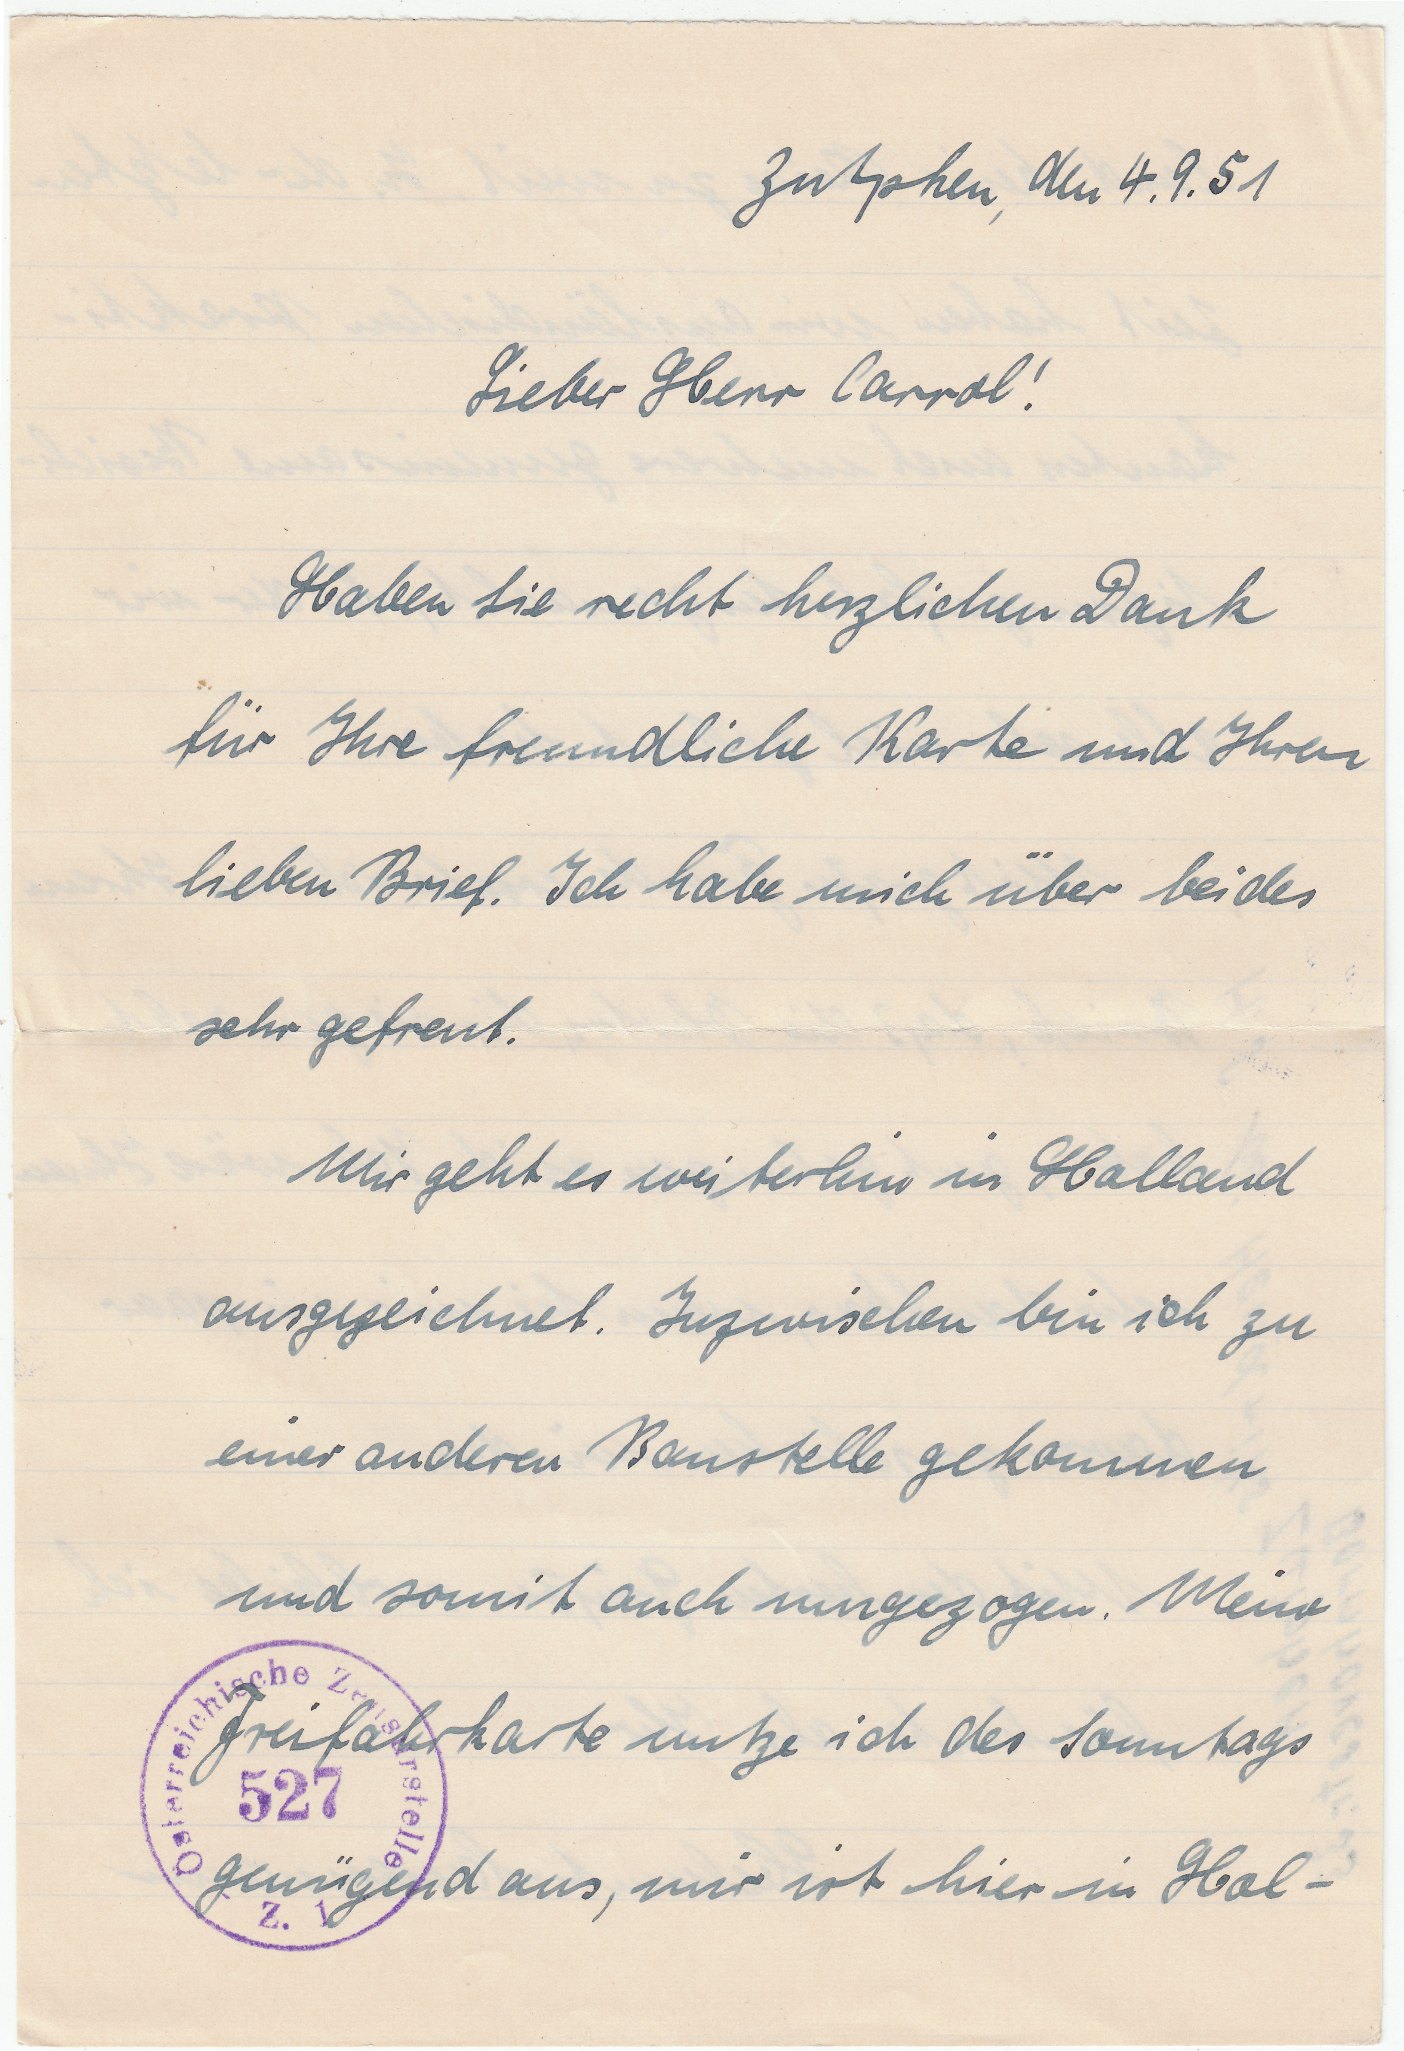 Zutphen, den 4.9.51
Lieber Herr Carrol!
Haben Sie recht herzlichen Dank
für Ihre freundliche Karte und Ihren
lieben Brief. Ich habe mich über beides
sehr gefreut.
Mir geht es weiterhin in Holland
ausgezeichnet. Inzwischen bin ich zu
einer anderen Baustelle gekommen
und somit auch umgezogen. Meine
Freifahrkarte nutze ich des Sonntags
genügend aus, mir ist hier in Hol-
Österreichische Zensurstelle
527
Z. 1